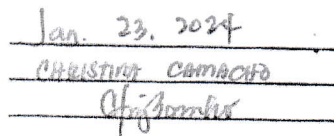 Jan. 23, 2024
CHRISTINA CAMACHO